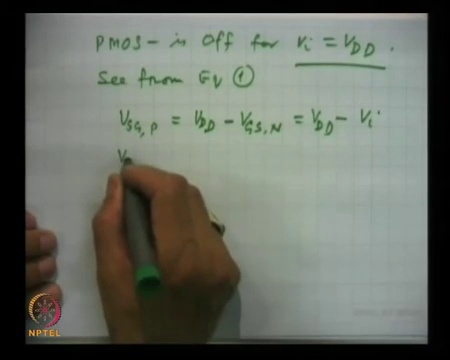 PMOS - is Off for Vi = VDD.
See from Eq ①
VSG,P = VDD - VGS,N = VDD - Vi
V
NPTEL